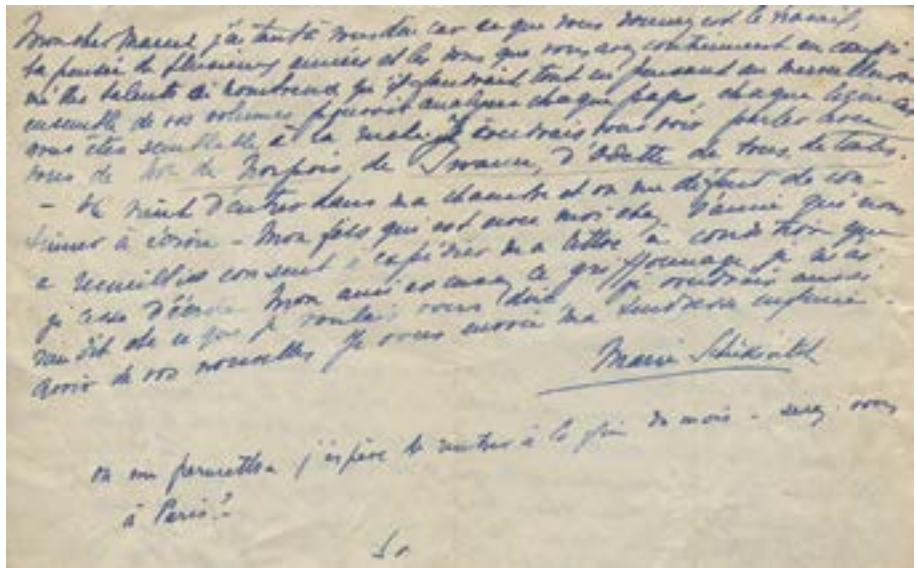 Mon cher Marcel j'ai tant à vous dire car ce que vous donnez est le travail,
la pensée de plusieurs années et les dons que vous avez
talents si nombreux qu'il faudrait tout en
ensemble de vos volumes pouvoir analyser chaque page, chaque ligne
vous êtes semblable à la Je voudrais vous voir parler avec
vous de de Norpois, de Swann, d'Odette de tous, de toutes.
- On vient d'entrer dans ma chambre et on me défend de con-
tinuer à écrire - Mon fils qui est avec moi chez l'amie qui nous
a recueillis consent à expédier ma lettre à condition que
je cesse d'écrire Mon ami
rien dit de ce que je voulais vous dire je voudrais aussi
avoir de vos nouvelles Je vous envoie ma tendresse infinie.
Marie Scheikévitch
on me permettra j'espère de rentrer à la fin du mois - serez-vous
à Paris?